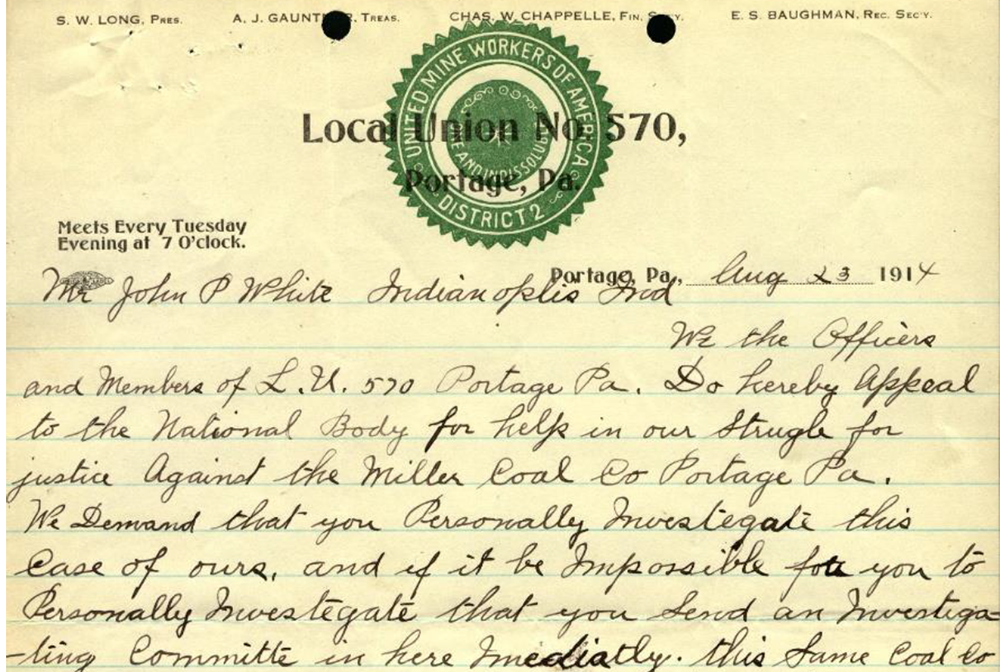 S. W. LONG, PRES. A. J. GAUNTER, TREAS. CHAS. W. CHAPPELLE, FIN. SEC'Y. E. S. BAUGHMAN, REC. SEC'Y.
UNITED MINE WORKERS OF AMERICA
DISTRICT 2
Local Union No. 570,
Portage, Pa.
Meets Every Tuesday
Evening at 7 O'clock.
Portage, Pa., Aug 23 1914
Mr John P White Indianoplis Ind
We the Officers
and Members of L.U. 570 Portage Pa. Do hereby Appeal
to the National Body for help in our Strugle for
justice Against the Miller Coal Co Portage Pa.
We Demand that you Personally Investegate this
Case of ours, and if it be Impossible for you to
Personally Investegate that you Send an Investega-
-ting Committe in here Imediatly. this Same Coal Co